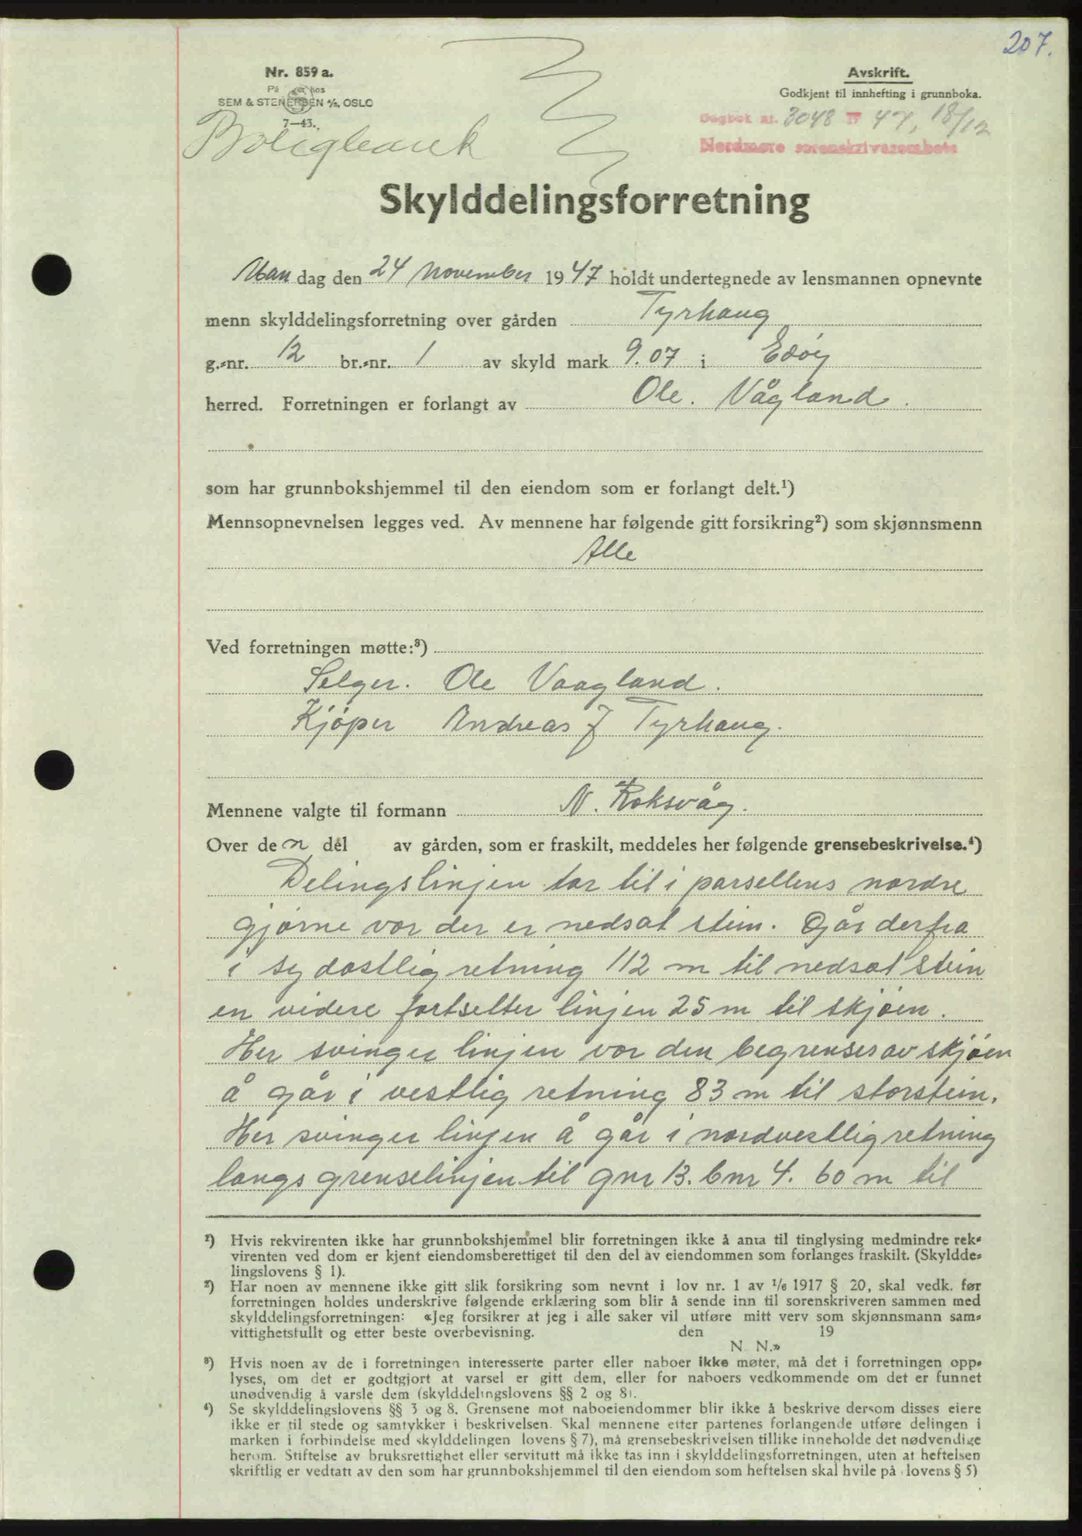 207.
Nr. 859 a.
Avskrift.
SEM & STENERSEN A/S, OSLO
Godkjent til innhefting i grunnboka.
7—43.
Dagbok nr. 3048 19 47, 18/12
Boligbank
Nordmøre sorenskriverembete
Skylddelingsforretning
Mandag den 24 November 1947 holdt undertegnede av lensmannen opnevnte
menn skylddelingsforretning over gården Tyrhaug
g.-nr. 12 br.-nr. 1 av skyld mark 9.07 i Edöy
herred. Forretningen er forlangt av Ole. Vågland.
som har grunnbokshjemmel til den eiendom som er forlangt delt.¹)
Mennsopnevnelsen legges ved. Av mennene har følgende gitt forsikring²) som skjønnsmenn
Alle
Ved forretningen møtte:³)
Selger. Ole Vaagland.
Kjöper Andreas J Tyrhaug.
Mennene valgte til formann N. Roksvåg.
Over den del av gården, som er fraskilt, meddeles her følgende grensebeskrivelse.⁴)
Delingslinjen tar til i parsellens nordre
gjörne vor der er nedsat stein. Går derfra
i sydostlig retning 112 m til nedsat stein
en videre fortsetter linjen 25 m til skjöen.
Her svinger linjen vor den begrenses av skjöen
å går i vestlig retning 83 m til storstein.
Her svinger linjen å går i nordvestlig retning
langs grenselinjen til gnr 13. bnr 4. 60 m til
¹) Hvis rekvirenten ikke har grunnbokshjemmel blir forretningen ikke å anta til tinglysing medmindre rek-
virenten ved dom er kjent eiendomsberettiget til den del av eiendommen som forlanges fraskilt. (Skyldde-
lingslovens § 1).
²) Har noen av mennene ikke gitt slik forsikring som nevnt i lov nr. 1 av 1/6 1917 § 20, skal vedk. før
forretningen holdes underskrive følgende erklæring som blir å sende inn til sorenskriveren sammen med
skylddelingsforretningen: «Jeg forsikrer at jeg i alle saker vil utføre mitt verv som skjønnsmann sam-
vittighetsfullt og etter beste overbevisning. den 19
N. N.»
³) Hvis noen av de i forretningen interesserte parter eller naboer ikke møter, må det i forretningen opp-
lyses, om det er godtgjort at varsel er gitt dem, eller for naboers vedkommende om det er funnet
unødvendig å varsle dem (skylddelingslovens §§ 2 og 8).
⁴) Se skylddelingslovens §§ 3 og 8. Grensene mot naboeiendommer blir ikke å beskrive dersom disses eiere
ikke er til stede og samtykker i beskrivelsen. Skal mennene etter partenes forlangende utføre delingen i
marken i forbindelse med skylddelingen (lovens § 7), må grensebeskrivelsen tillike inneholde det nødvendige
herom. Stiftelse av bruksrettighet eller servitutt må ikke tas inn i skylddelingsforretningen, uten at heftelsen
skriftlig er vedtatt av den som har grunnbokshjemmel til den eiendom som heftelsen skal hvile på (lovens § 5)